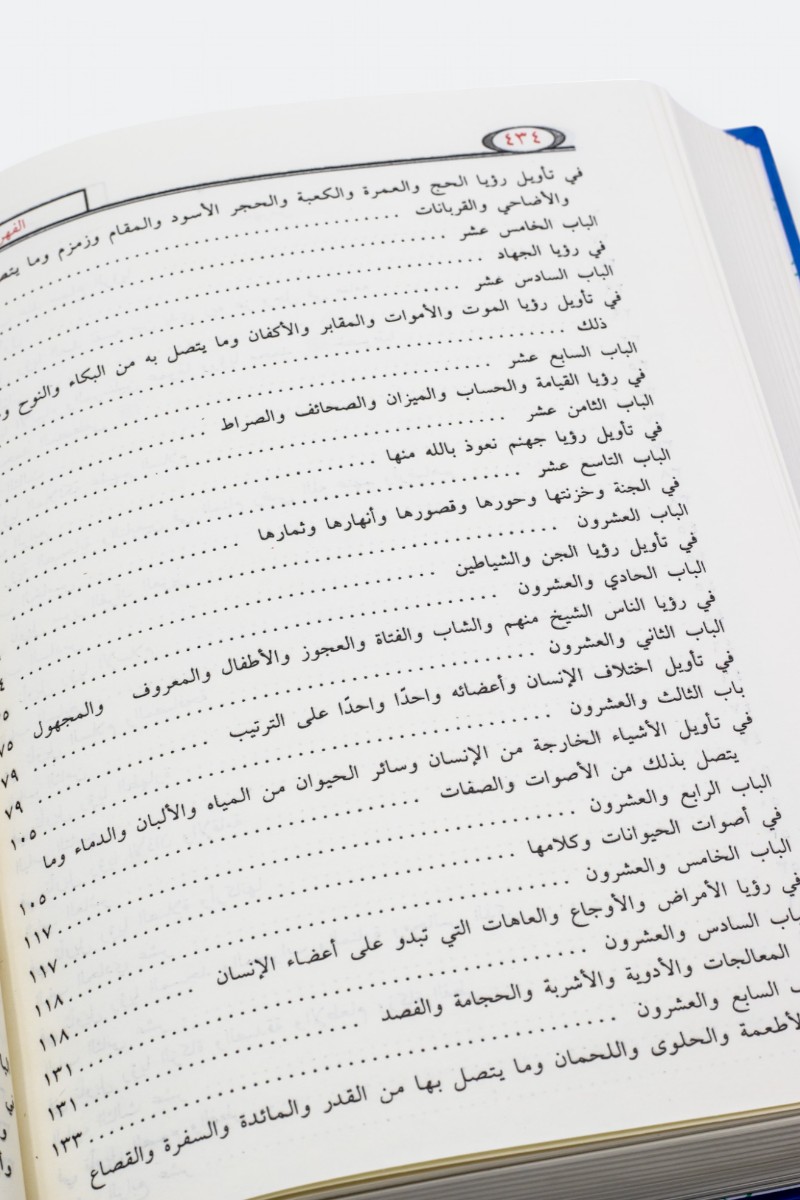 ٤٣٤
الفهر
في تأويل رؤيا الحج والعمرة والكعبة والحجر الأسود والمقام وزمزم وما يتص
والأضاحي والقربانات
الباب الخامس عشر
في رؤيا الجهاد
الباب السادس عشر
في تأويل رؤيا الموت والأموات والمقابر والأكفان وما يتصل به من البكاء والنوح و
ذلك
الباب السابع عشر
في رؤيا القيامة والحساب والميزان والصحائف والصراط
الباب الثامن عشر
في تأويل رؤيا جهنم نعوذ بالله منها
الباب التاسع عشر
في الجنة وخزنتها وحورها وقصورها وأنهارها وثمارها
الباب العشرون
في تأويل رؤيا الجن والشياطين
الباب الحادي والعشرون
في رؤيا الناس الشيخ منهم والشاب والفتاة والعجوز والأطفال والمعروف والمجهول ٧٥
الباب الثاني والعشرون ٧٩
في تأويل اختلاف الإنسان وأعضائه واحدًا واحدًا على الترتيب ٧٩
باب الثالث والعشرون ١٠٥
في تأويل الأشياء الخارجة من الإنسان وسائر الحيوان من المياه والألبان والدماء وما
يتصل بذلك من الأصوات والصفات ١٠٥
الباب الرابع والعشرون ١١٧
في أصوات الحيوانات وكلامها ١١٧
الباب الخامس والعشرون ١١٨
في رؤيا الأمراض والأوجاع والعاهات التي تبدو على أعضاء الإنسان ١١٨
باب السادس والعشرون ١٣١
المعالجات والأدوية والأشربة والحجامة والفصد ١٣١
ب السابع والعشرون ١٣٣
لأطعمة والحلوى واللحمان وما يتصل بها من القدر والمائدة والسفرة والقصاع